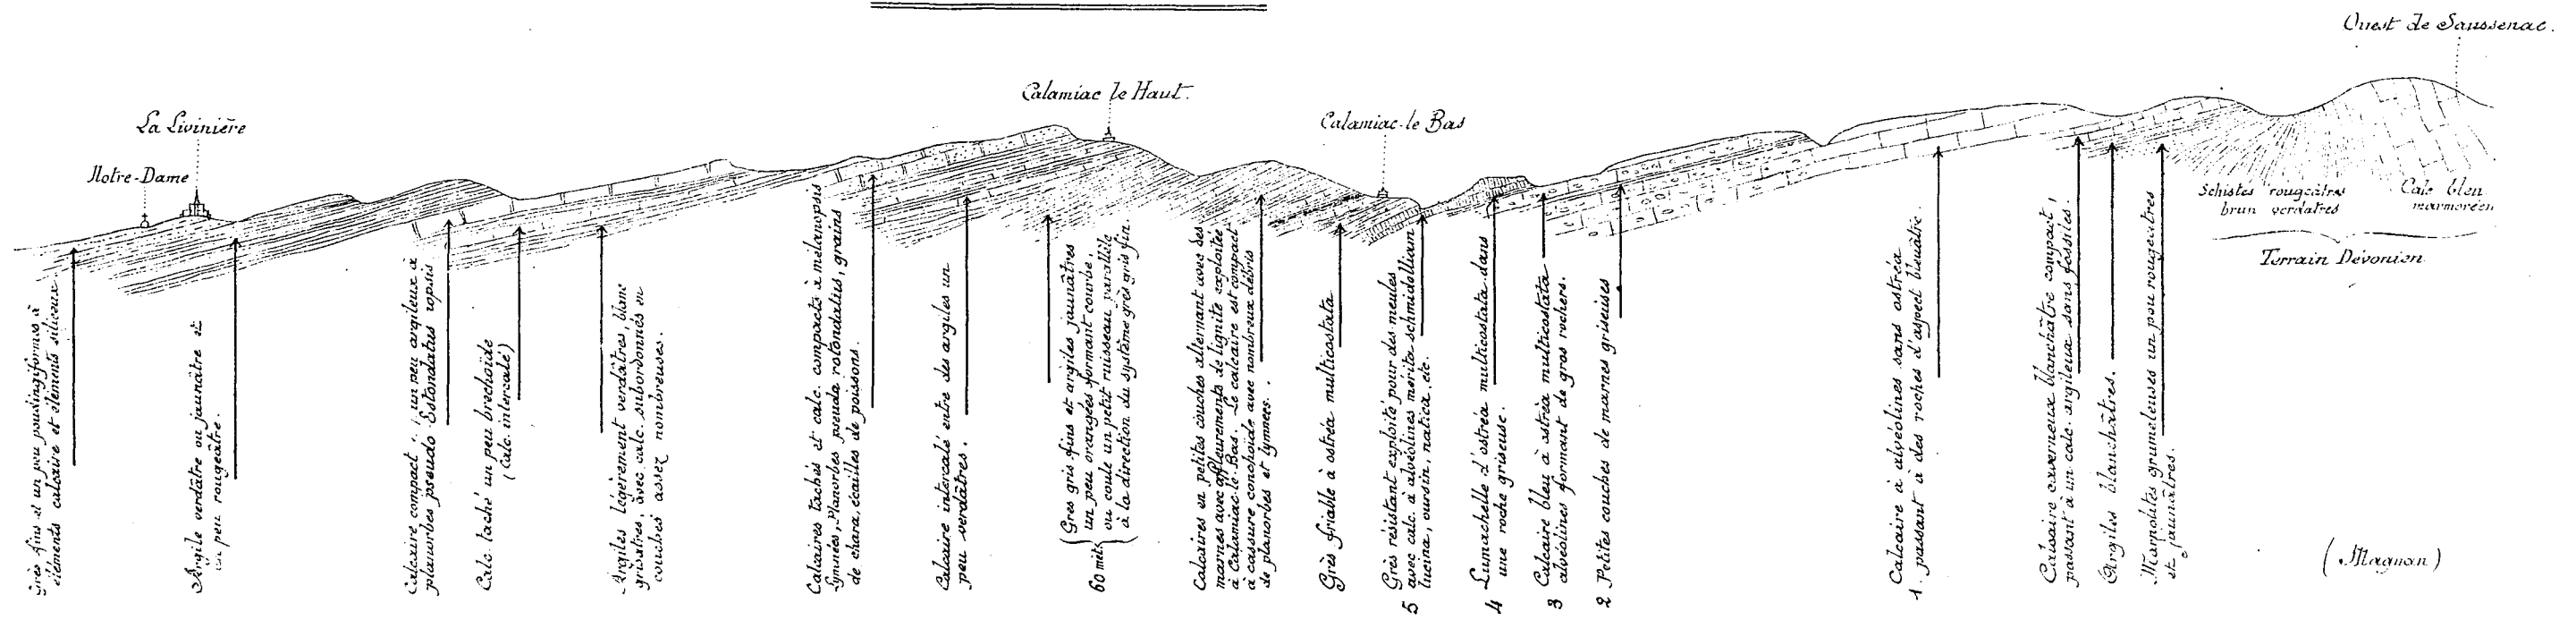 Ouest de Saussenac.
Calamiac le Haut.
La Livinière
Calamiac-le Bas
Notre-Dame
Schistes rougeâtres
brun verdâtres
Calc bleu
marmoréen
Terrain Dévonien
Grès fins et un peu poudingiformes à
éléments calcaire et éléments siliceux
Argile verdâtre ou jaunâtre et
un peu rougeâtre.
Calcaire compact un peu argileux à
planorbes pseudo
Calc taché un peu brechoïde
(Calc. intercalé)
Argiles légèrement verdâtres, blanc
grisâtres, avec calc. subordonnés en
couches assez nombreuses.
Calcaires tachés et calc. compacts à melanopsis
Lymnées, Planorbes pseudo rotondatus, grains
de chara, écailles de poissons.
Calcaire intercalé entre des argiles un
peu verdâtres.
Grès gris fins et argiles jaunâtres
un peu orangées formant courbe,
ou coule un petit ruisseau parallèle
à la direction du système grès gris fin.
60 mèts
Calcaires en petites couches alternant avec des
marnes avec affleurements de lignite exploitée
à Calamiac-le-Bas. Le calcaire est compact
à cassure conchoïde avec nombreux débris
de planorbes et lymnées.
Grès friable à ostréa multicostata
Grès résistant exploité pour des meules
avec calc. à alvéolines nerita schmidelliam
lucina, oursin, natica, etc.
5
Lumachelle d'ostréa multicostata dans
une roche griseuse.
4
Calcaire bleu à ostréa multicostata
alvéolines formant de gros rochers.
3
Petites couches de marnes griseuses
2
Calcaire à alvéolines sans ostréa
passant à des roches d'aspect bleuâtre.
1
Calcaire caverneux blanchâtre compact,
passant à un calc. argileux sans fossiles.
Argiles blanchâtres.
Marnolites grumeleuses un peu rougeâtres
et jaunâtres.
(Magnan)